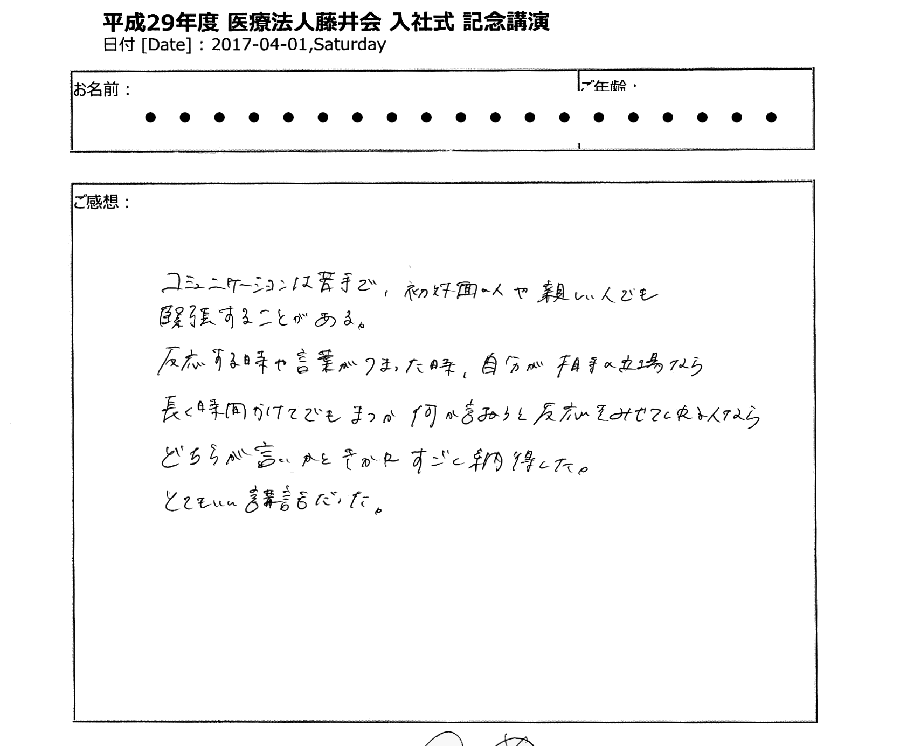 平成29年度 医療法人藤井会 入社式 記念講演
日付 [Date] : 2017-04-01,Saturday
お名前：
ご年齢：
ご感想：
コミュニケーションは苦手で、初対面の人や親しい人でも
緊張することがある。
反応する時や言葉がつまった時、自分が相手の立場なら
長く時間かけてでもまつか 何か言おうと反応をみせてくれる人なら
どちらが言いかときかれ すごく納得した。
とてもいい講話だった。